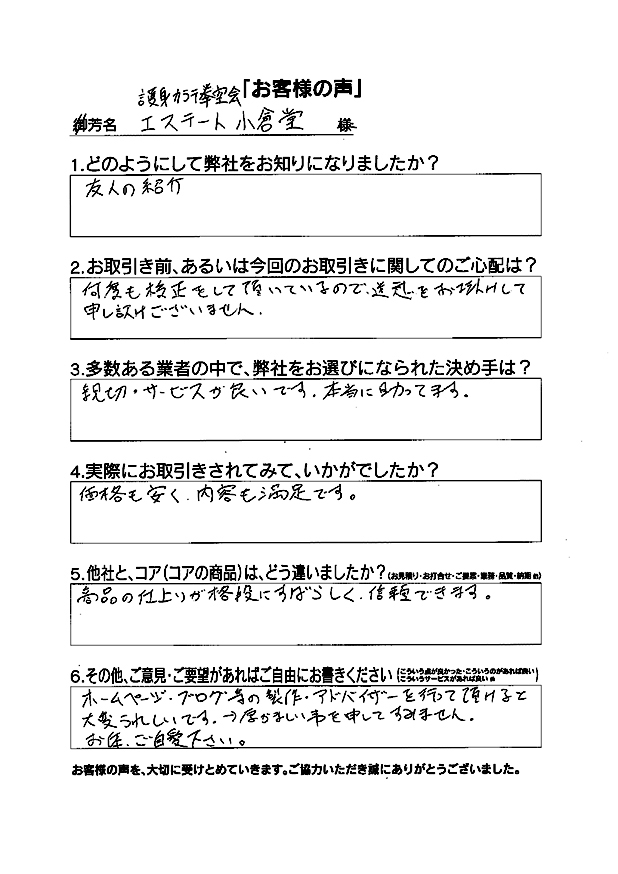 「お客様の声」
護身カラテ拳空会
御芳名 エステート小倉堂 様
1.どのようにして弊社をお知りになりましたか？
友人の紹介
2.お取引き前、あるいは今回のお取引きに関してのご心配は？
何度も校正をして頂いているので、迷惑をお掛けして
申し訳けございません.
3.多数ある業者の中で、弊社をお選びになられた決め手は？
親切・サービスが良いです.本当に助ってます。
4.実際にお取引きされてみて、いかがでしたか？
価格も安く.内容も満足です。
5.他社と、コア(コアの商品)は、どう違いましたか？(お見積り・お打合せ・ご提案・業務・品質・納期 etc)
商品の仕上りが格段にすばらしく.信頼できます。
6.その他、ご意見・ご要望があればご自由にお書きください(こういう点が良かった・こういうのがあれば良い
こういうサービスがあれば良い etc)
ホームページ・ブログ等の製作・アドバイザーを行って頂けると
大変うれしいです.→厚かましい事を申してすみません.
お体.ご自愛下さい。
お客様の声を、大切に受けとめていきます。ご協力いただき誠にありがとうございました。